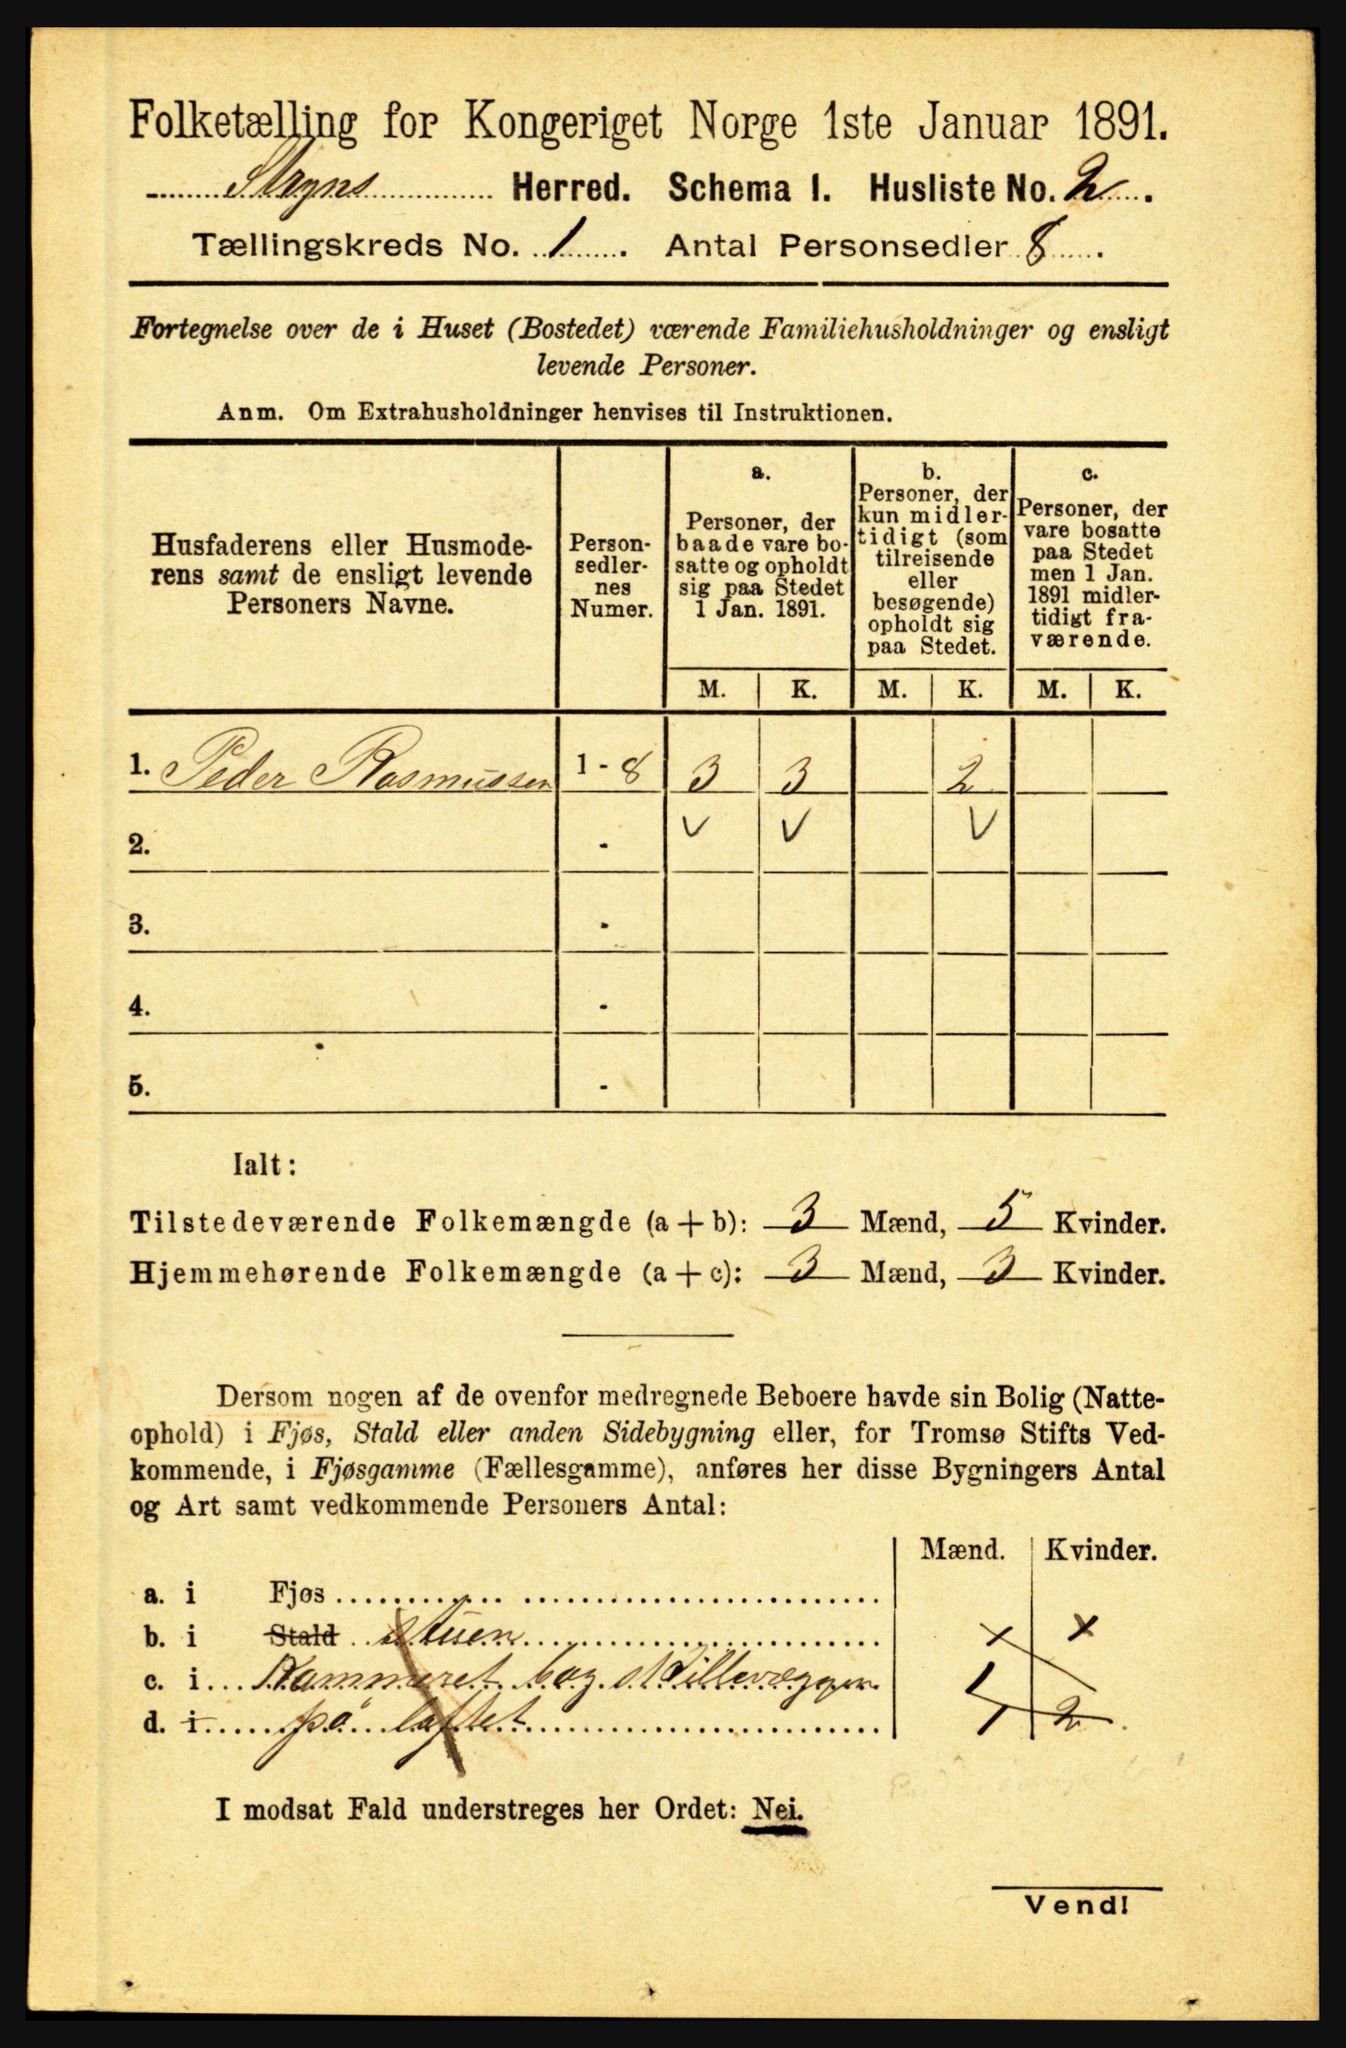 Folketælling for Kongeriget Norge 1ste Januar 1891.
Stryns Herred. Schema 1. Husliste No. 2.
Tællingskreds No. 1. Antal Personsedler 8.
Fortegnelse over de i Huset (Bostedet) værende Familiehusholdninger og ensligt
levende Personer.
Anm. Om Extrahusholdninger henvises til Instruktionen.
Husfaderens eller Husmode-
rens samt de ensligt levende
Personers Navne.
Person-
sedler-
nes
Numer.
a.
Personer, der
baade vare bo-
satte og opholdt
sig paa Stedet
1 Jan. 1891.
b.
Personer, der
kun midler-
tidigt (som
tilreisende
eller
besøgende)
opholdt sig
paa Stedet.
c.
Personer, der
vare bosatte
paa Stedet
men 1 Jan.
1891 midler-
tidigt fra-
værende.
M. K. M. K. M. K.
1. Peder Rasmussen 1 - 8 3 3 2
2. - V V V
3. -
4. -
5. -
Ialt:
Tilstedeværende Folkemængde (a + b): 3 Mænd, 5 Kvinder.
Hjemmehørende Folkemængde (a + c): 3 Mænd, 3 Kvinder.
Dersom nogen af de ovenfor medregnede Beboere havde sin Bolig (Natte-
ophold) i Fjøs, Stald eller anden Sidebygning eller, for Tromsø Stifts Ved-
kommende, i Fjøsgamme (Fællesgamme), anføres her disse Bygningers Antal
og Art samt vedkommende Personers Antal:
Mænd. Kvinder.
a. i Fjøs
b. i Stald stuen x x
c. i Kammeret bag skillevæggen 1
d. i på loftet 1 2
I modsat Fald understreges her Ordet: Nei.
Vend!